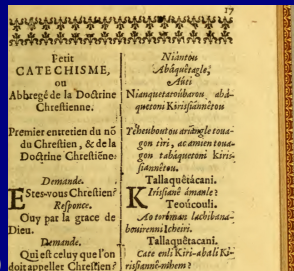 17
Petit
CATECHISME,
ou
Abbregé de la Doctrine
Chrestienne.
Premier entretien du nõ
du Chrestien, & de la
Doctrine Chrestiẽne.
Demande.
EStes-vous Chrestien?
Responce.
Ouy par la grace de
Dieu.
Demande.
Qui est celuy que l'on
doit appeller Chrestien?
Niantou
Abáquêtagle,
Aúci
Nianquetaroúbarou abá-
quetoni Kirisiánnêtou
Yéheuboutou ariángle toua-
gon iri, acamien toua-
gon tabáquetoni Kiris-
siannêtou.
Tallaquêtácani.
KIrisiané ámanle?
Teoúcouli.
Ao toróman lachibana-
bouirenni Icheiri.
Tallaquetacani.
Cate enli Kiri-abali Ki-
risiannê-nhem?